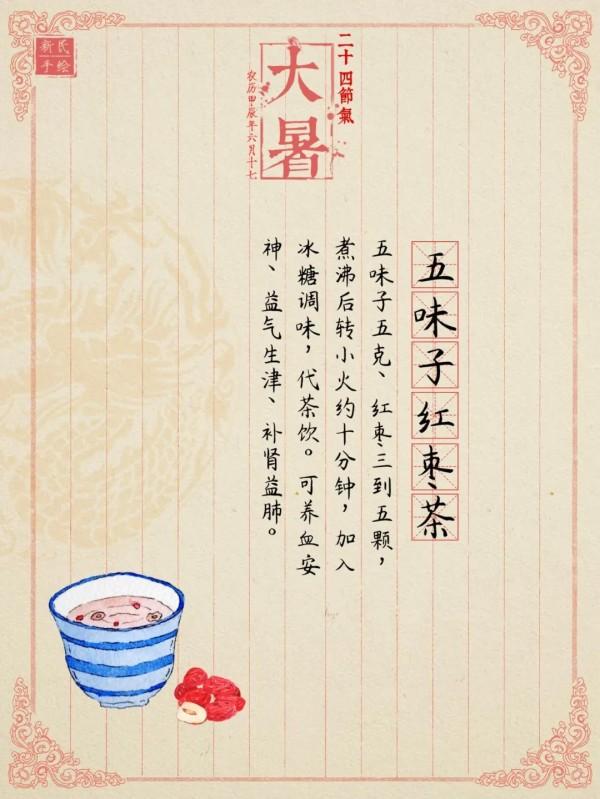 新民
手绘
二十四節氣
大暑
农历甲辰年六月十七
五味子红枣茶
五味子五克、红枣三到五颗，
煮沸后转小火约十分钟，加入
冰糖调味，代茶饮。可养血安
神、益气生津、补肾益肺。